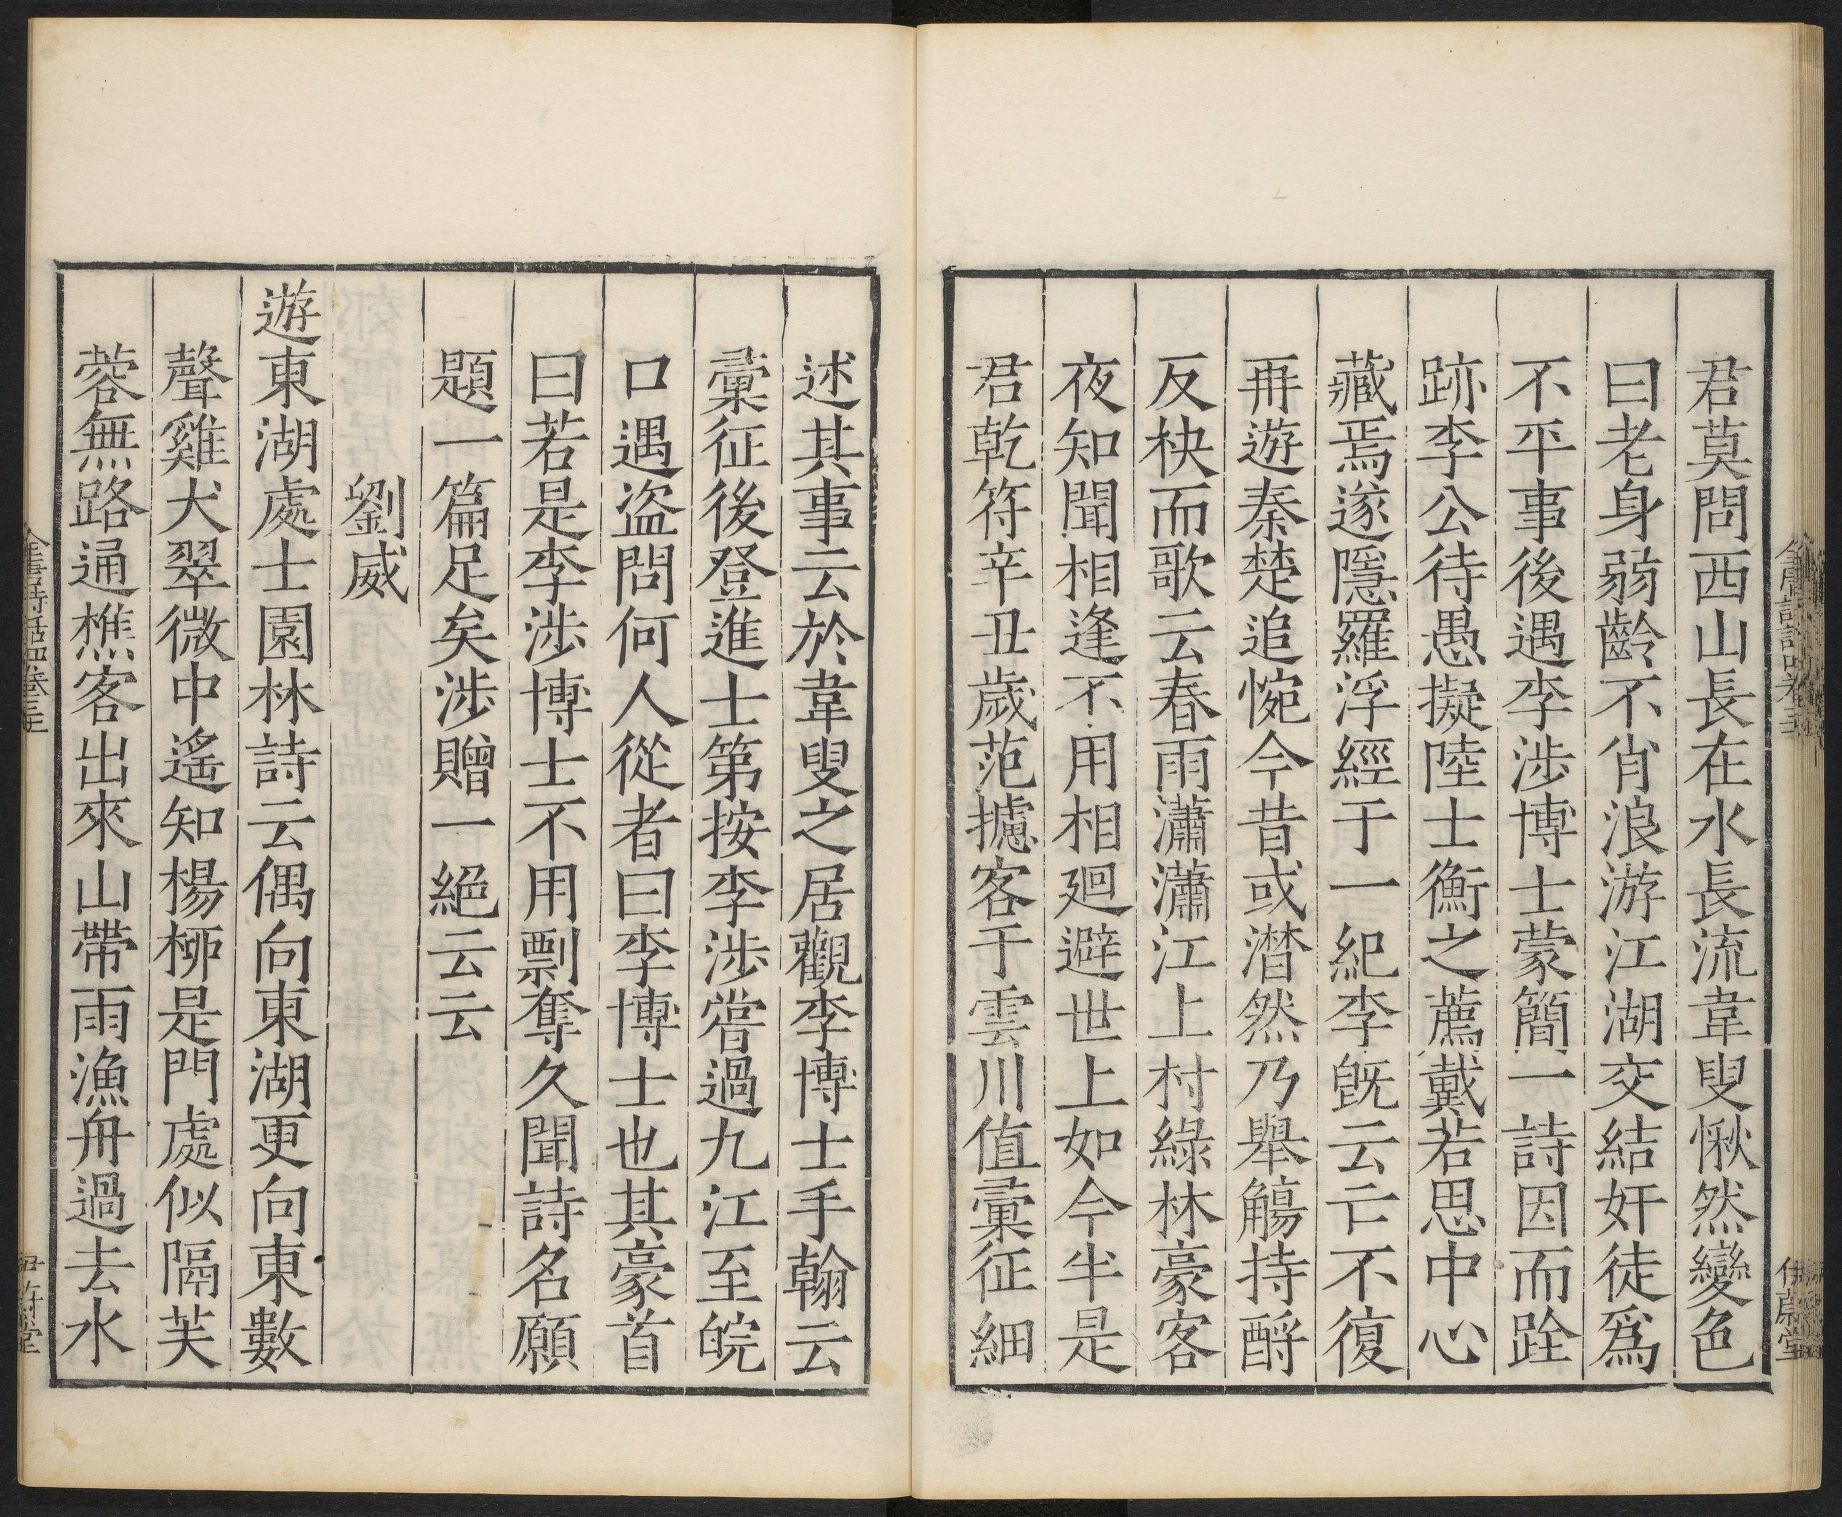 君莫問西山長在水長流韋叟愀然變色
曰老身弱齡不肖浪游江湖交結奸徒爲
不平事後遇李涉博士蒙簡一詩因而跧
跡李公待愚擬陸士衡之薦戴若思中心
藏焉遂隱羅浮經于一紀李旣云亡不復
再遊秦楚追惋今昔或潸然乃舉觴持酹
反袂而歌云春雨瀟瀟江上村綠林豪客
夜知聞相逢不用相廻避世上如今半是
君乾符辛丑歲范攄客于雲川值彙征細
述其事云於韋叟之居觀李博士手翰云
彙征後登進士第按李涉嘗過九江至皖
口遇盗問何人從者曰李博士也其豪首
曰若是李涉博士不用剽奪久聞詩名願
題一篇足矣涉贈一絕云云
劉威
遊東湖處士園林詩云偶向東湖更向東數
聲雞犬翠微中遙知楊栁是門處似隔芙
蓉無路通樵客出來山帶雨漁舟過去水